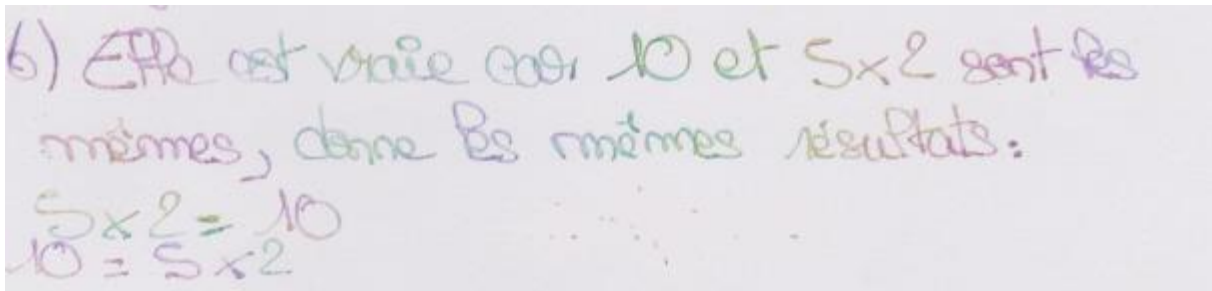 6) Elle est vraie car 10 et 5x2 sont les
mêmes, donne les mêmes résultats.
5x2 = 10
10 = 5x2